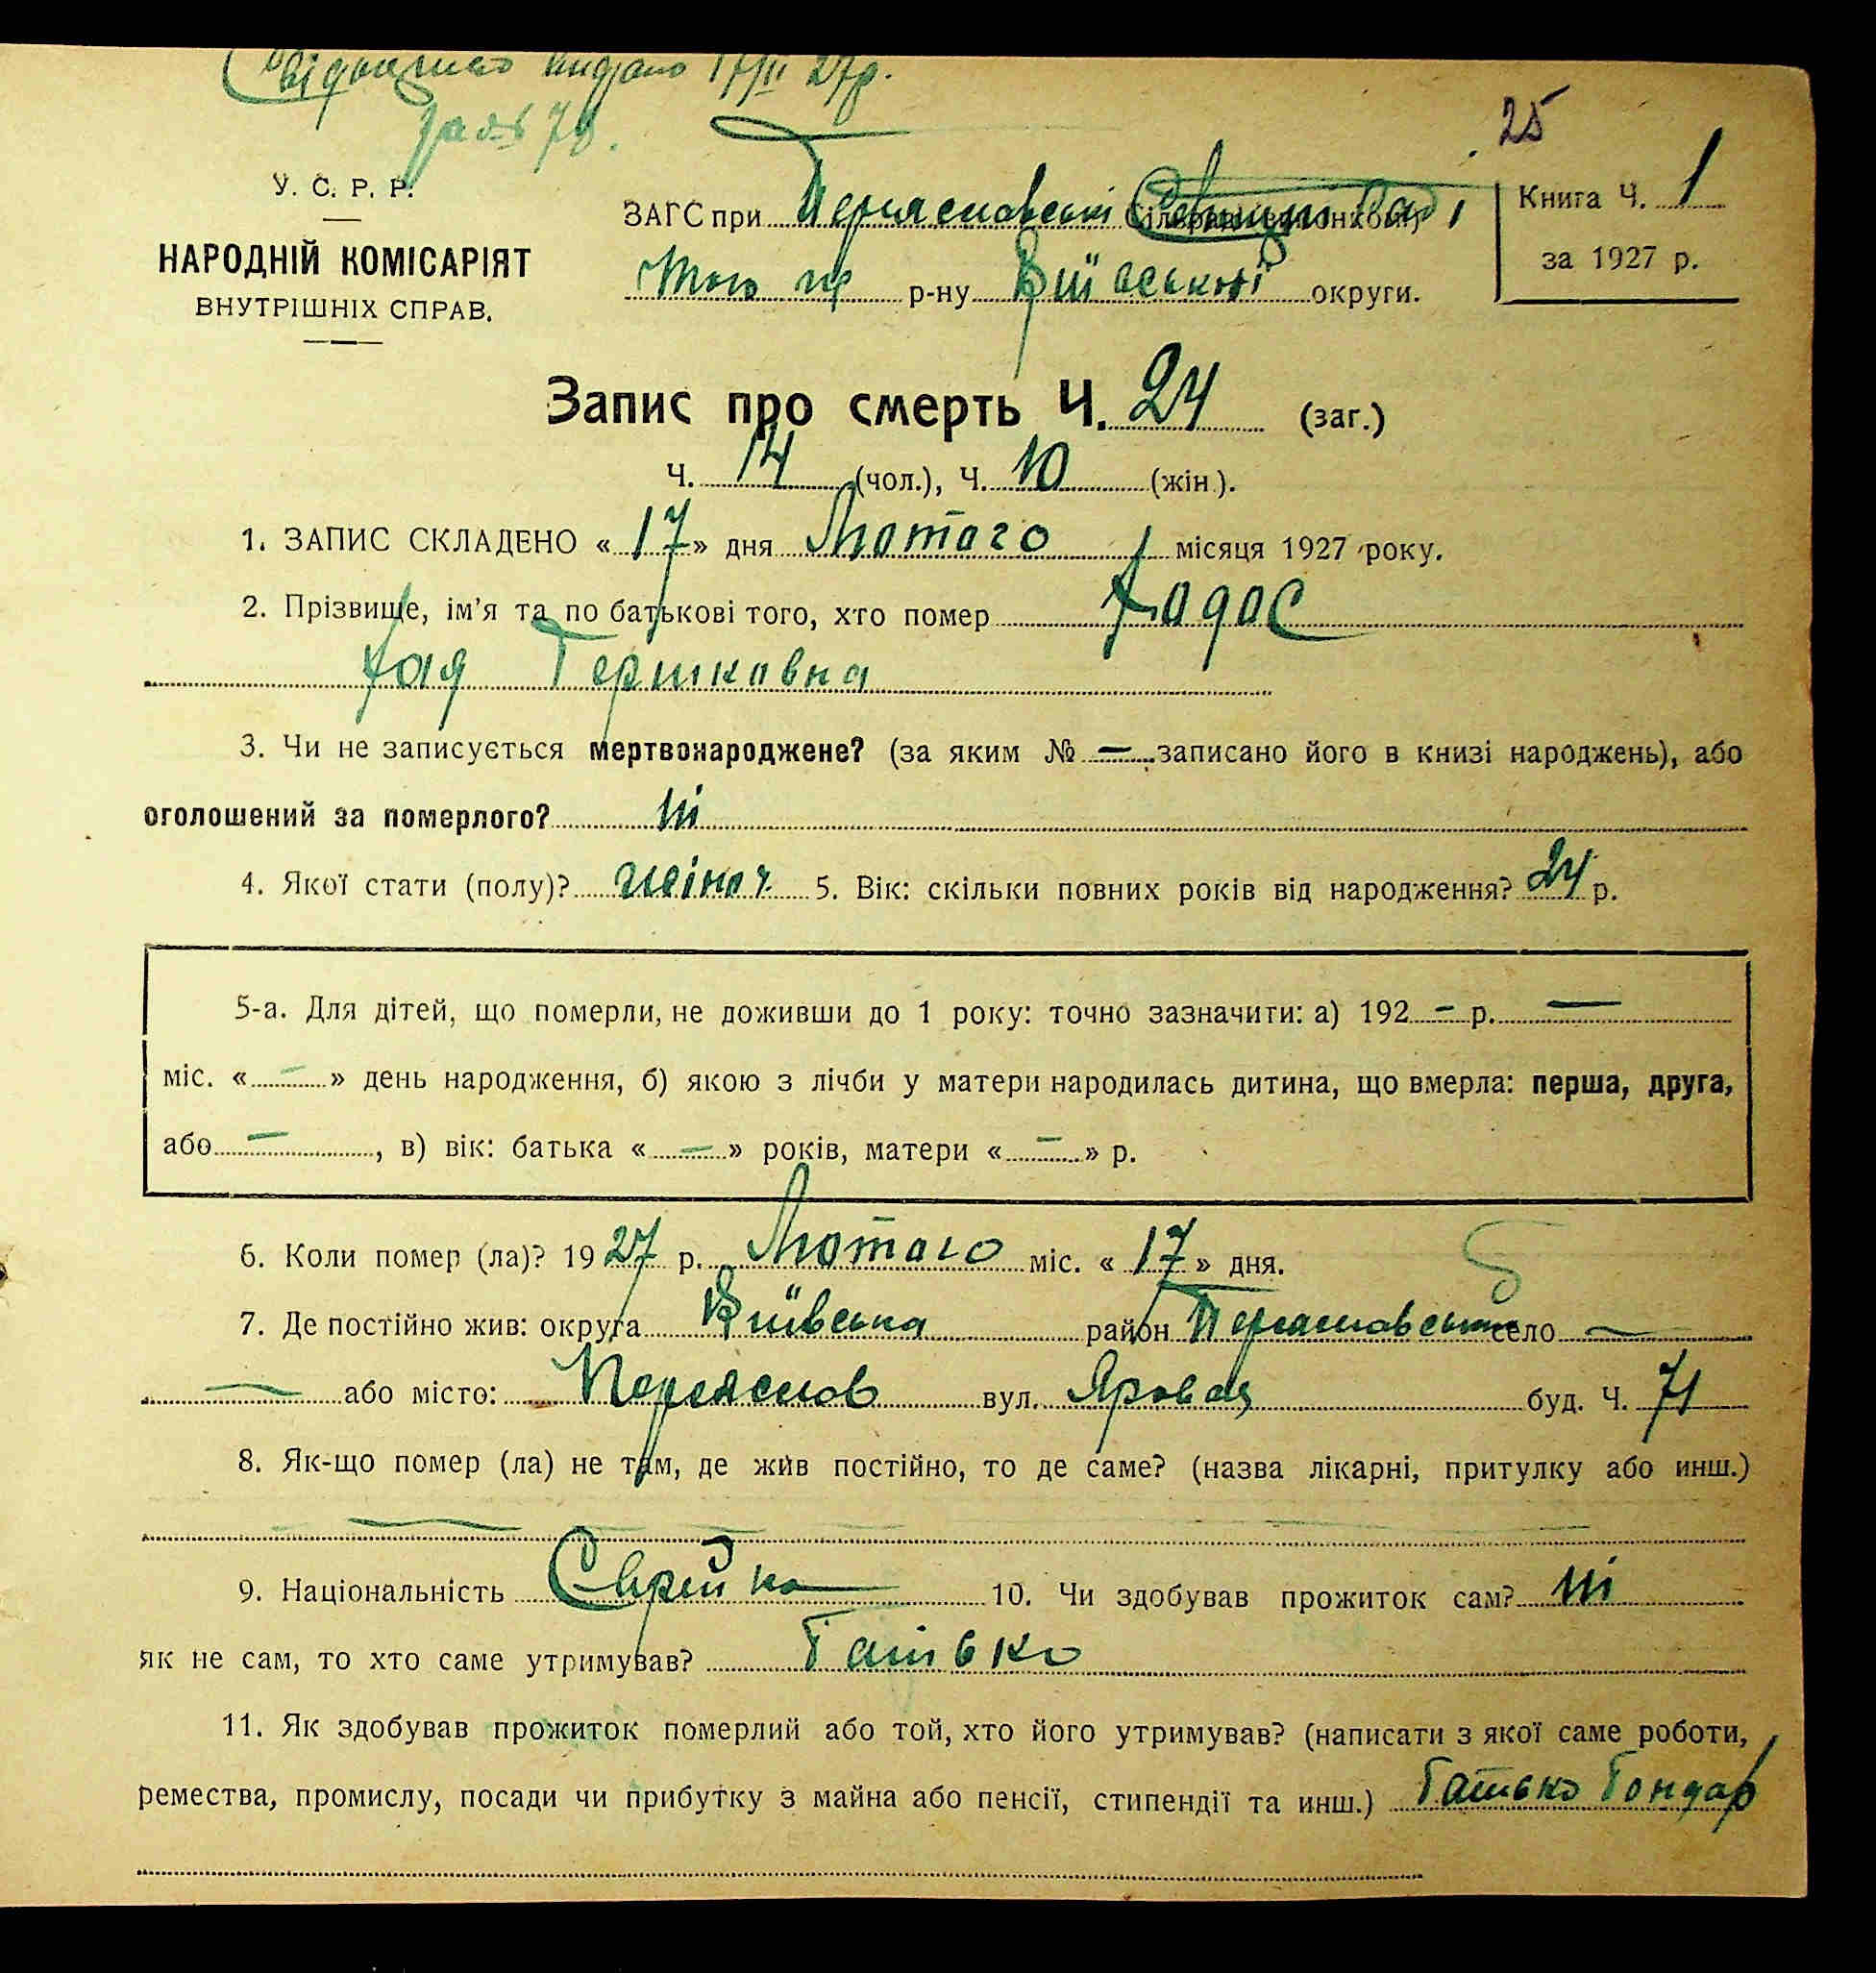 видано 17/II 27р.
25
У. С. Р. Р.
НАРОДНІЙ КОМІСАРІЯТ
ВНУТРІШНІХ СПРАВ.
ЗАГС при Переяславській
того ж р-ну Київської округи.
Книга Ч. 1
за 1927 р.
Запис про смерть Ч. 24 (заг.)
Ч. 14 (чол.), Ч. 10 (жін.).
1. ЗАПИС СКЛАДЕНО « 17 » дня Лютого місяця 1927 року.
2. Прізвище, ім'я та по батькові того, хто помер Ходос
Хая Гершковна
3. Чи не записується мертвонароджене? (за яким № — записано його в книзі народжень), або
оголошений за померлого? ні
4. Якої стати (полу)? жіноч. 5. Вік: скільки повних років від народження? 24 р.
5-а. Для дітей, що померли, не доживши до 1 року: точно зазначити: а) 192 — р. —
міс. « — » день народження, б) якою з лічби у матери народилась дитина, що вмерла: перша, друга,
або —, в) вік: батька « — » років, матери « — » р.
6. Коли помер (ла)? 1927 р. Лютого міс. « 17 » дня.
7. Де постійно жив: округа Київська район Переяславськ село —
— або місто: Переяслов вул. Яровая буд. Ч. 71
8. Як-що помер (ла) не там, де жив постійно, то де саме? (назва лікарні, притулку або инш.)
—
9. Національність Єврейка 10. Чи здобував прожиток сам? ні
як не сам, то хто саме утримував? Батько
11. Як здобував прожиток померлий або той, хто його утримував? (написати з якої саме роботи,
ремества, промислу, посади чи прибутку з майна або пенсії, стипендії та инш.) Батько Бондар